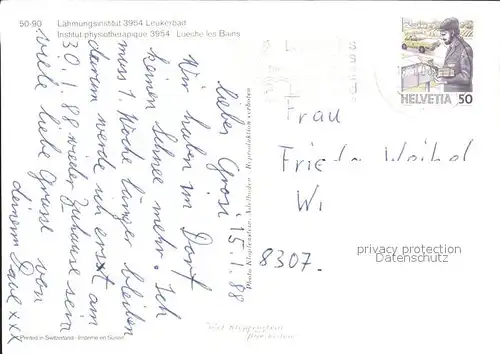 50-90 Lähmungsinstitut 3954 Leukerbad
Institut physothérapique 3954 Loèche les Bains
HELVETIA 50
lieber Grosi 15.1.88
Wir haben im Dorf
keinen Schnee mehr. Ich
muss 1. Woche länger bleiben
darum werde ich erst am
30.1.88 wieder Zuhause sein
viele liebe Grüsse von
deinem xxx
Frau
Frieda
Wi
8307.
privacy protection
Datenschutz
Photo Klopfenstein, Adelboden Reproduktion verboten
Printed in Switzerland - Imprimé en Suisse